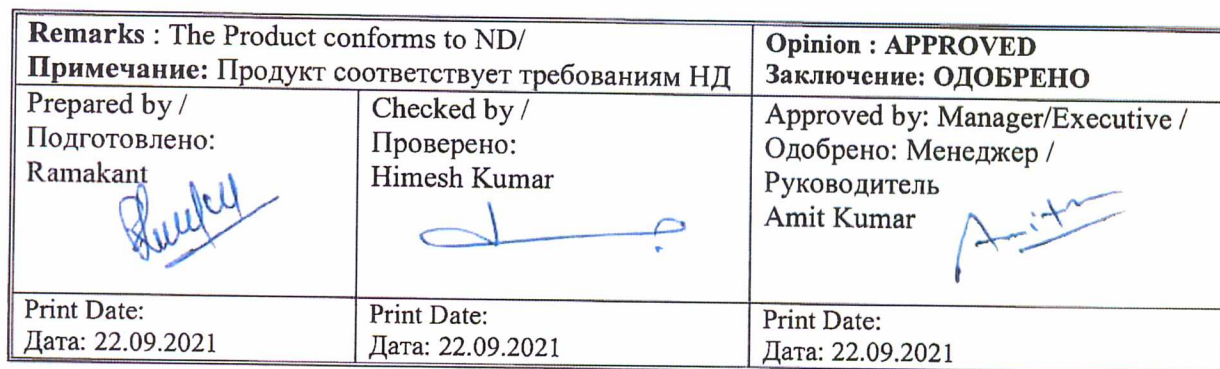 Remarks : The Product conforms to ND/
Примечание: Продукт соответствует требованиям НД
Opinion : APPROVED
Заключение: ОДОБРЕНО
Prepared by /
Подготовлено:
Ramakant
Checked by /
Проверено:
Himesh Kumar
Approved by: Manager/Executive /
Одобрено: Менеджер /
Руководитель
Amit Kumar
Amit
Print Date:
Дата: 22.09.2021
Print Date:
Дата: 22.09.2021
Print Date:
Дата: 22.09.2021